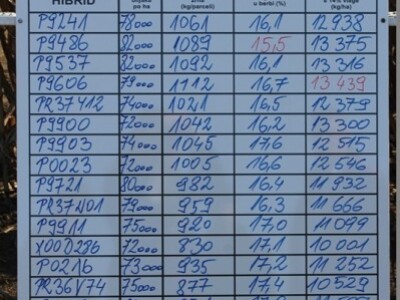 HIBRID po ha (kg/parceli) u berbi (%) (kg/ha)
P9241 78000 1061 16,1 12938
P9486 82000 1089 15,5 13375
P9537 82000 1092 16,1 13316
P9606 79000 1112 16,7 13439
PR37Y12 74000 1021 16,5 12379
P9900 72000 1042 16,2 13300
P9903 74000 1045 17,6 12515
P0023 72000 1005 16,6 12546
P9721 80000 982 16,4 11932
PR37N01 79000 959 16,3 11666
P9911 75000 920 17,0 11099
X00D286 72000 830 17,1 10001
P0216 73000 935 17,2 11252
PR36V74 75000 877 17,4 10529